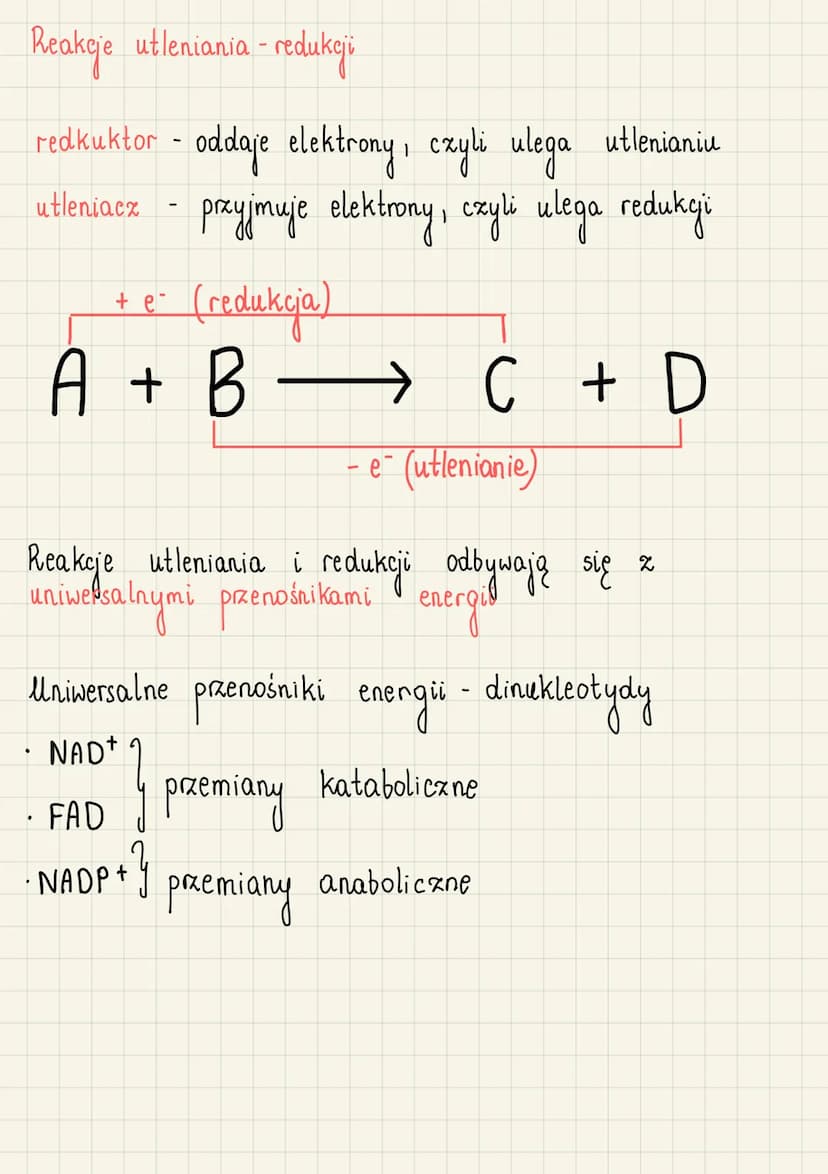 Reakcje utleniania - redukcji
redkuktor - oddaje elektrony, czyli ulega utlenianiu
utleniacz - przyjmuje elektrony, czyli ulega redukcji
+ e⁻ (redukcja)
A + B ⟶ C + D
- e⁻ (utlenianie)
Reakcje utleniania i redukcji odbywają się z
uniwersalnymi przenośnikami energii
Uniwersalne przenośniki energii - dinukleotydy
· NAD⁺
} przemiany kataboliczne
· FAD
· NADP⁺ } przemiany anaboliczne